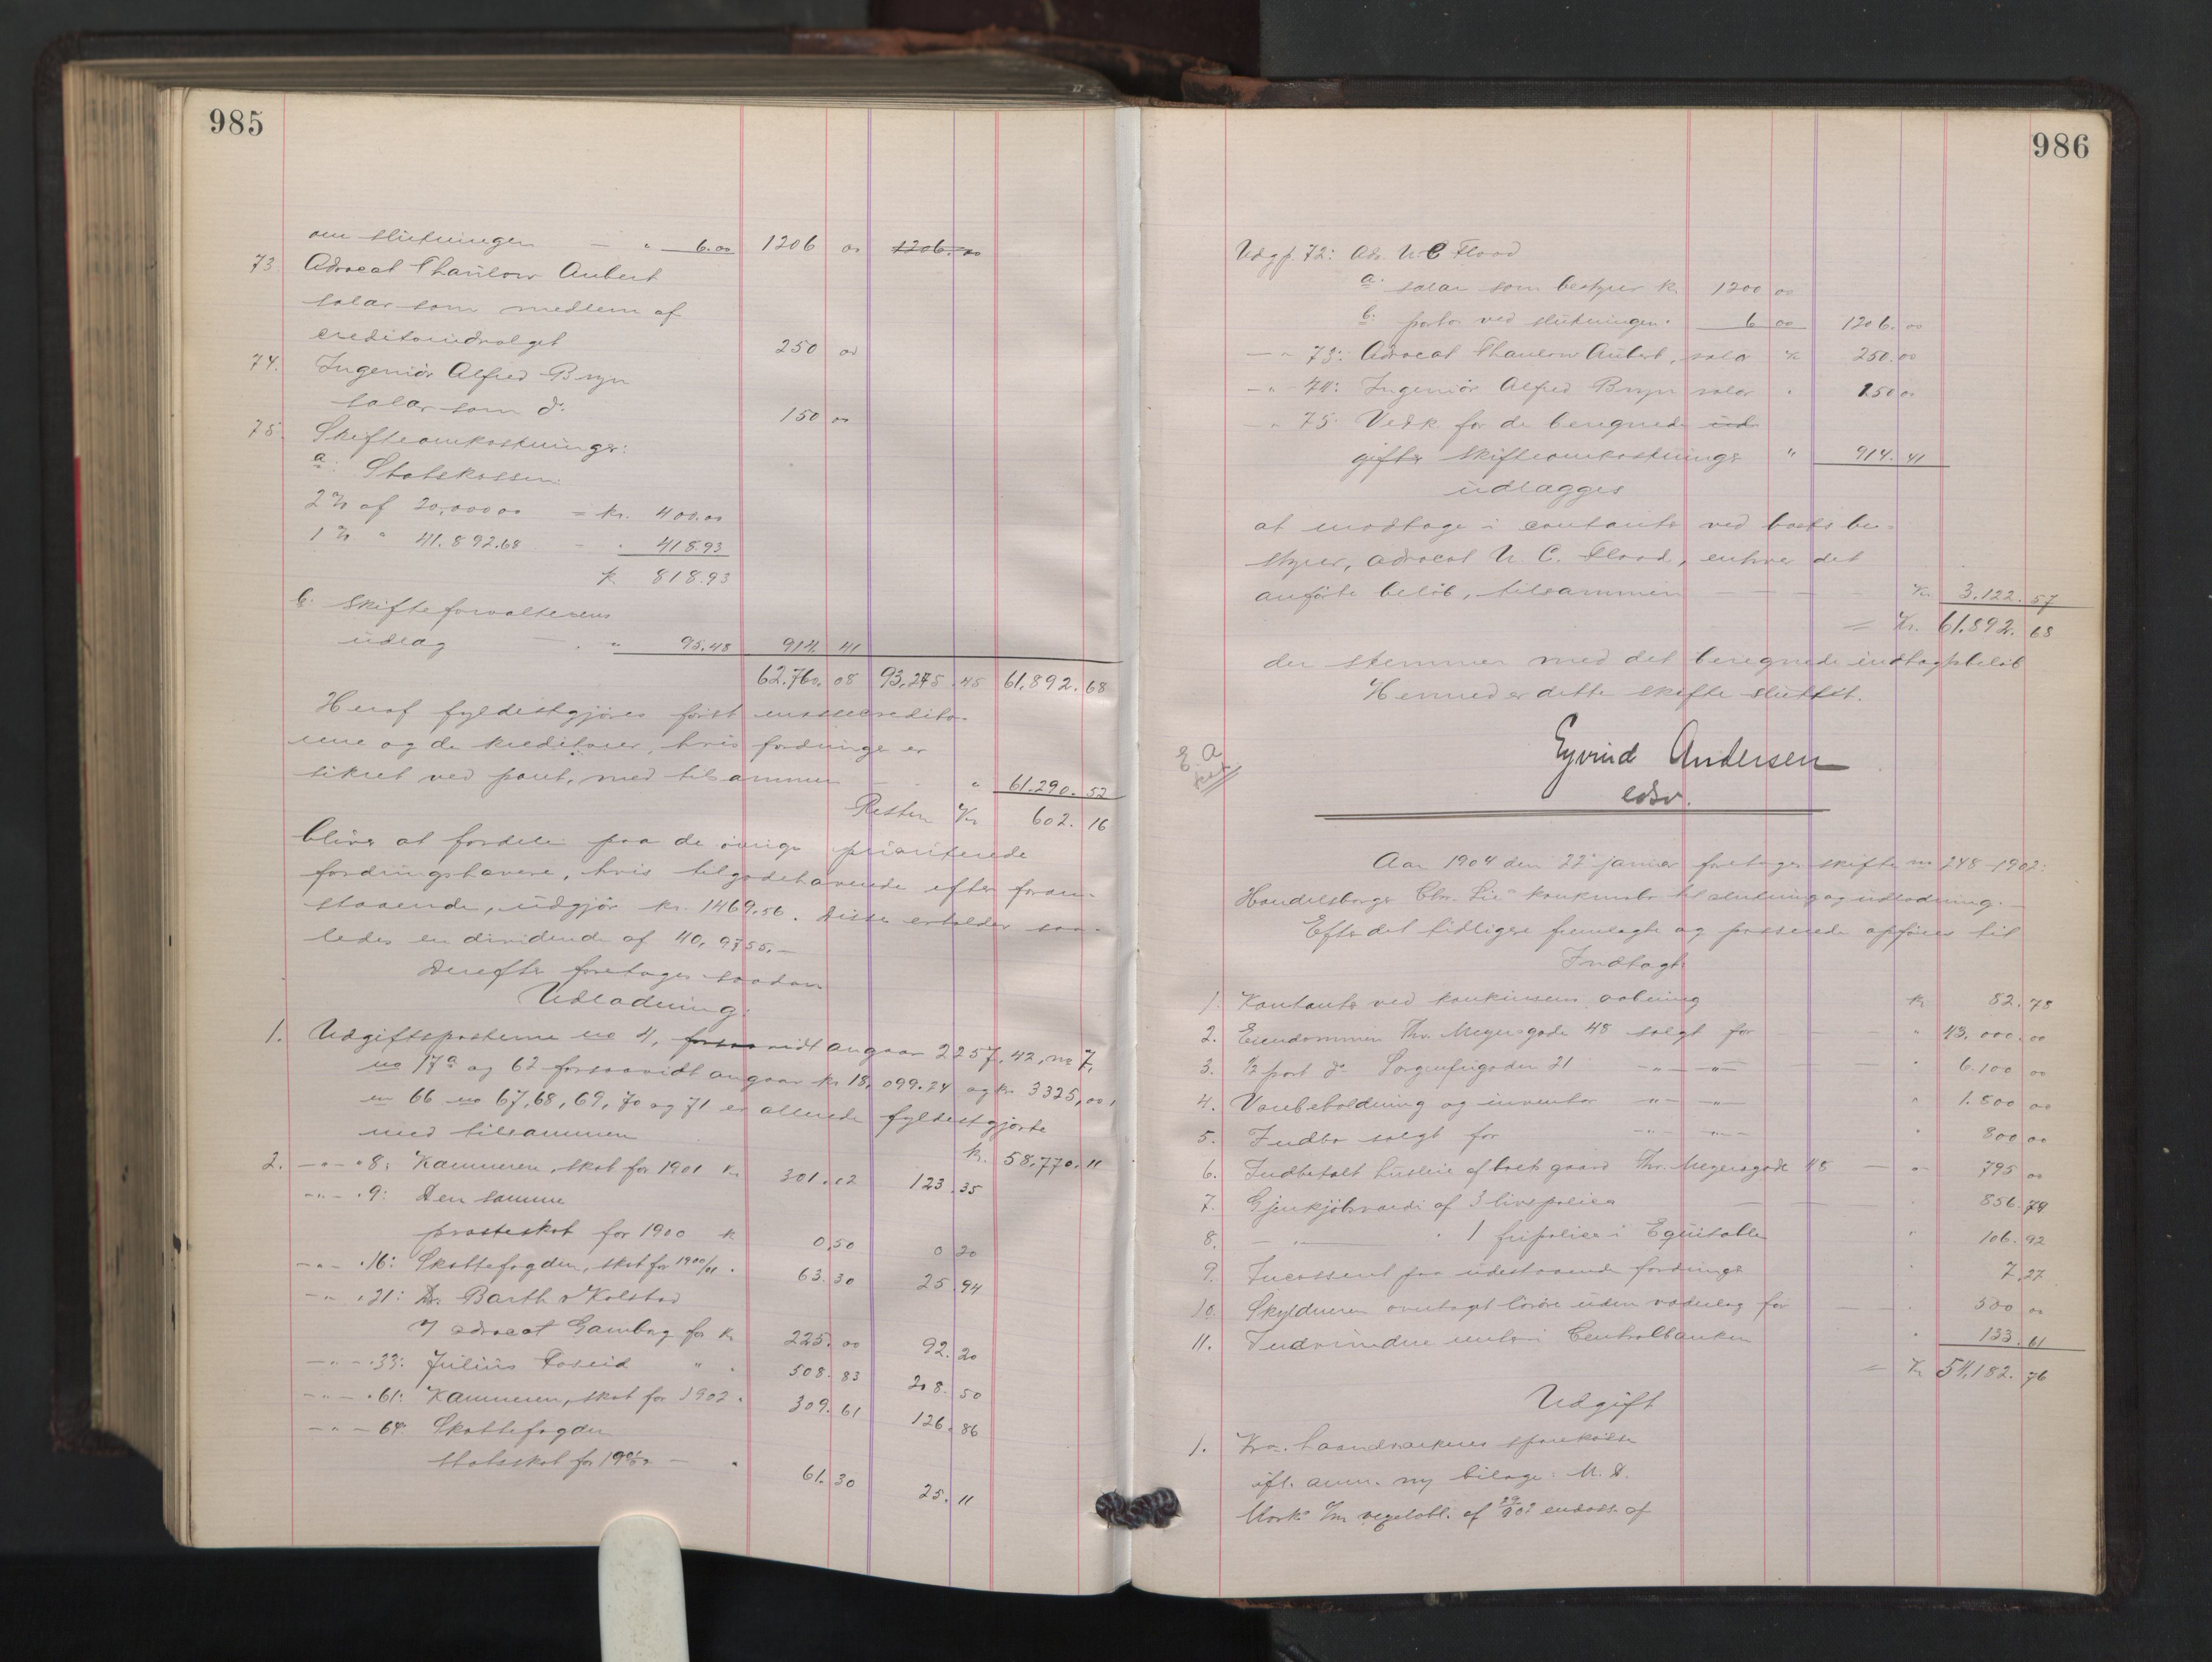 985
om slutningen — " 6.00 1206 00 1206.00
73. Advocat Thaulow Aubert
salar som medlem af
creditorudvalget 250 00
74. Ingeniør Alfred Bryn
salar som do 150 00
75. Skifteomkostninger:
a: Statskassen:
2 % af 20,000 00 = kr. 400.00
1 % " 41.892.68 - " 418.93
kr 818.93
b: Skifteforvalterens
udlag — " 95.48 914. 41
62.760. 08 93,275.45 61,892.68
Heraf fyldestgjøres først massecredito-
rerne og de kreditorer, hvis fordringer er
sikret ved pant, med tilsammen — " 61.290.52
Resten Kr 602.16
bliver at fordele paa de øvrige prioriterede
fordringshavere, hvis tilgodehavende efter foran-
staaende, udgjør kr. 1469.56. Disse erholder saa-
ledes en dividende af 40,9755.—
Derefter foretages saadan
Udlodning:
1. Udgiftsposterne no 4, forsaavidt angaar 2257.42, no 7,
no 17a og 62 forsaavidt angaar kr 18,099.24 og kr 3325,00,
no 66 no 67, 68, 69, 70 og 71 er allerede fyldestgjorte
med tilsammen kr. 58,770.11
2. — " — " 8: Kæmneren, skat for 1901 kr 301.12 123.35
— " — " 9: Den samme
præsteskat for 1900 kr 0.50 0 20
— " — " 16: Skattefogden, skat for 1900/01 " 63.30 25.94
— " — " 21: Dr. Barth v Kolstad
v/ advocat Gamborg for kr 225.00 92.20
— " — " 33: Julius Foseid " " 508.83 208.50
— " — " 61: Kæmneren, skat for 1902 " 309.61 126.86
— " — 64: Skattefogden
statsskat for — " 61.30 25.11
986
Udgp. 72: Adv. U. C Flood
a: salar som bestyrer kr 1200 00
b: porto ved slutningen " 6 00 1206.00
— " 73: Advocat Thaulow Aubert, salar kr 250.00
— " — 74: Ingeniør Alfred Bryn salar " 150 00
— " 75: Vedk. for de beregnede ud-
gifter skifteomkostninger " 914.41
udlægges
at modtage i contanter ved boets be-
styrer, advocat U. C. Flood, enhver det
anførte beløb, tilsammen — — — — Kr. 3.122.57
= Kr. 61.892.68
der stemmer med det beregnede indtægtsbeløb
Hermed er dette skifte sluttet.
E. A
Eyvind Andersen
edsv.
Aar 1904 den 22de januar foretages skifte no 248-1902:
Handelsborger Chr. Lie's konkursbo til slutning og udlodning.—
Efter det tidligere fremlagte og passerede opføres til
Indtægt
1. Kontanter ved konkursens aabning kr 82.78
2. Eiendommen Thv. Meyersgade 48 solgt for — — — " 43.000.00
3. 1/2 part do Sorgenfrigaden 21 — " — " — " 6.100 00
4. Varebeholdning og inventar — " — " — " 1.800 00
5. Indbo solgt for — " — " — " 800 00
6. Indbetalt husleie af boets gaard Thv. Meyersgade 48 — " — 795 00
7. Gjenkjøbsværdi af 3 livspolicer — — " 856.79
8. — " — " 1 fripolice i Equitable " 106.92
9. Incasseret paa udestaaende fordringer " 7.27
10. Skyldneren overtaget løsøre uden vederlag for — — " 500 00
11. Indvundne renter i Centralbanken " 133.61
= Kr 54,182.76
Udgift
1. Kra. haandværkeres sparekasse
ifl. anm. ny bilage: M. D.
af endoss. af